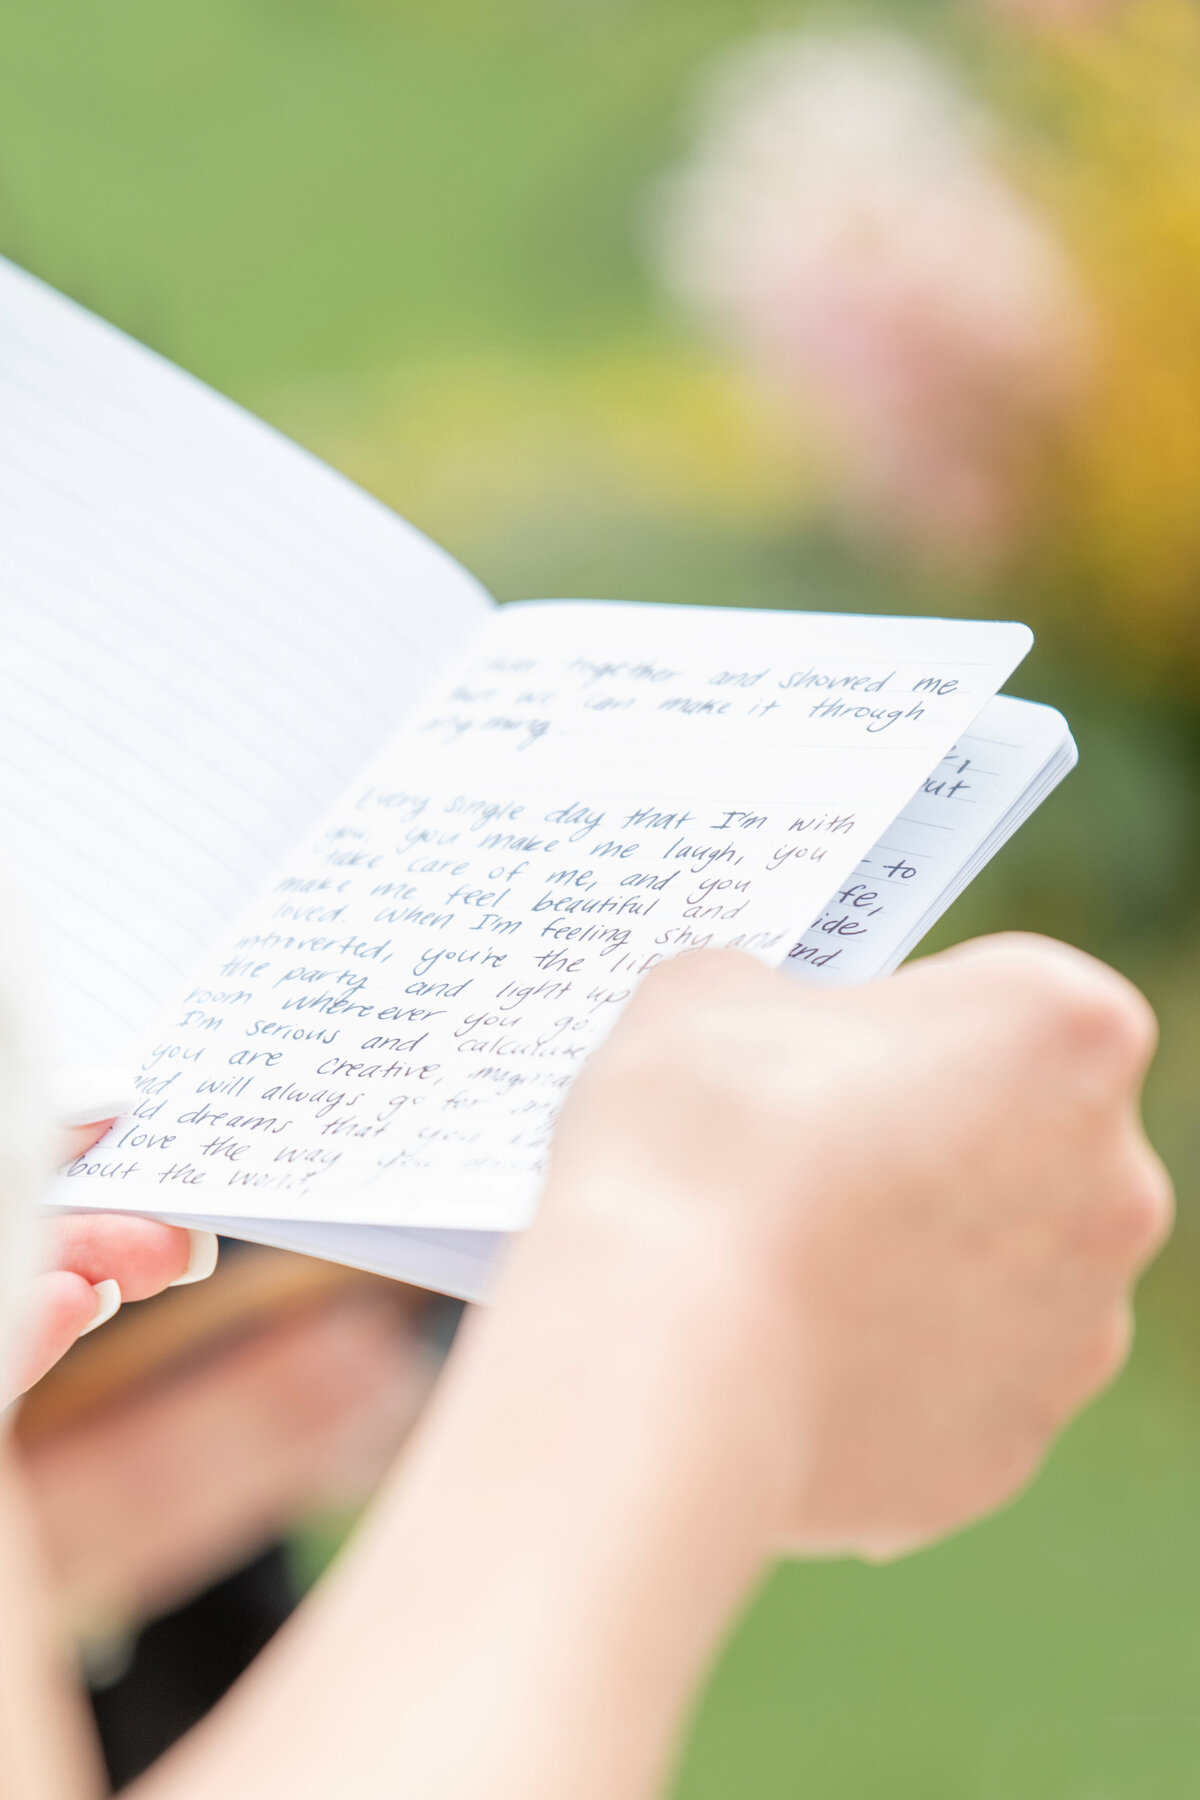 together and showed me
we can make it through
anything.
Every single day that I'm with
you, you make me laugh, you
take care of me, and you
make me feel beautiful and
loved. When I'm feeling shy and
introverted, you're the
the party and light up
room whereever you go.
I'm serious and
you are creative,
and will always go for
dreams that you
love the way you
about the world,
out
to
and